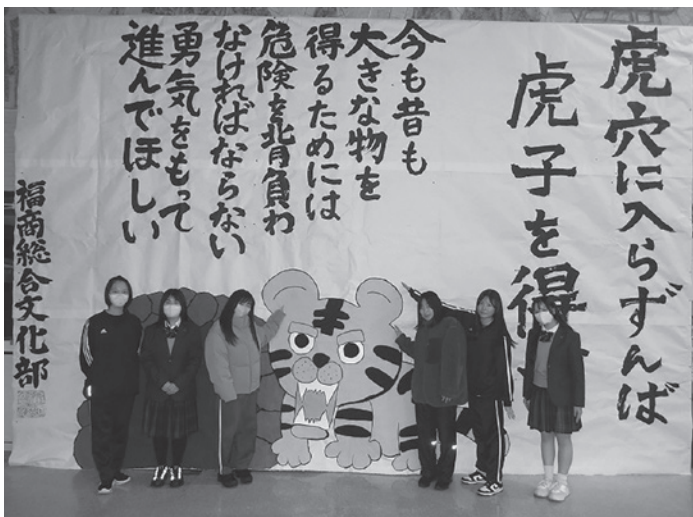 虎穴に入らずんば
虎子を得
今も昔も
大きな物を
得るためには
危険を背負わ
なければならない
勇気をもって
進んでほしい
福商総合文化部